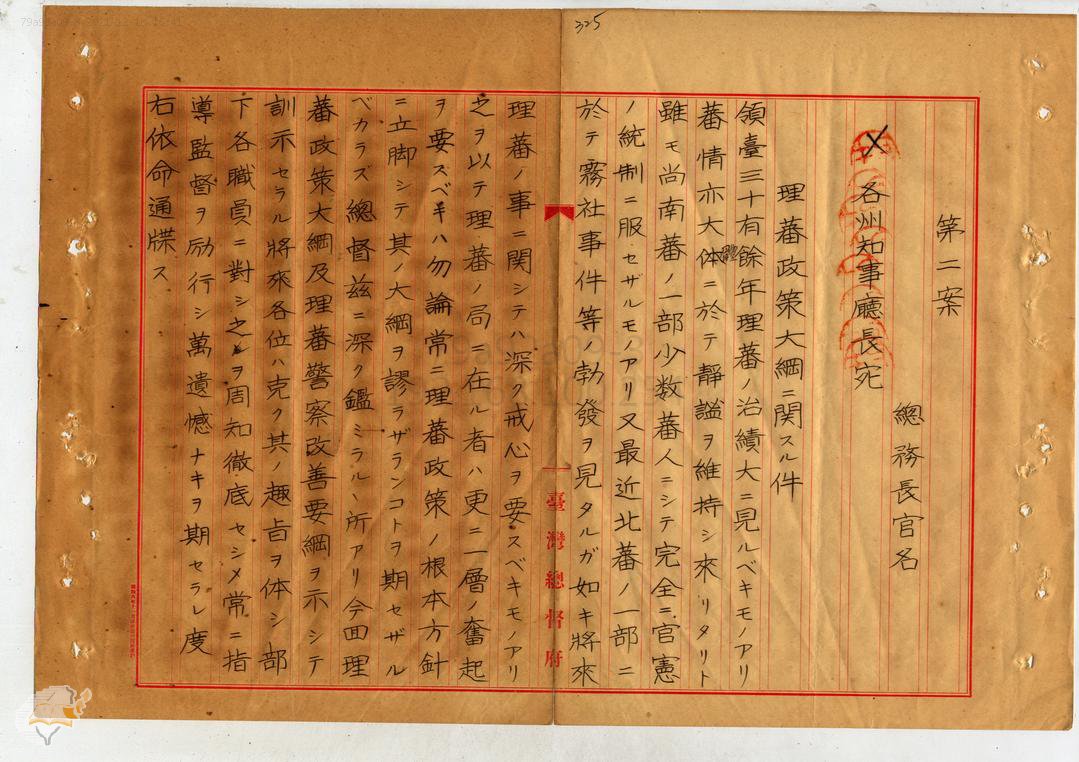 325
第二案
總務長官名
各州知事廳長宛
理蕃政策大綱ニ関スル件
領臺三十有餘年理蕃ノ治績大ニ見ルベキモノアリ
蕃情亦大体ニ於テ靜謐ヲ維持シ來リタリト
雖モ尚南蕃ノ一部少数蕃人ニシテ完全ニ官憲
ノ統制ニ服セザルモノアリ又最近北蕃ノ一部ニ
於テ霧社事件等ノ勃發ヲ見タルガ如キ將來
理蕃ノ事ニ関シテハ深ク戒心ヲ要スベキモノアリ
之ヲ以テ理蕃ノ局ニ在ル者ハ更ニ一層ノ奮起
ヲ要スベキハ勿論常ニ理蕃政策ノ根本方針
ニ立脚シテ其ノ大綱ヲ謬ラザランコトヲ期セザル
ベカラズ總督茲ニ深ク鑑ミラルヽ所アリ今回理
蕃政策大綱及理蕃警察改善要綱ヲ示シテ
訓示セラル將來各位ハ克ク其ノ趣旨ヲ体シ部
下各職員ニ對シ之ヲ周知徹底セシメ常ニ指
導監督ヲ励行シ萬遺憾ナキヲ期セラレ度
右依命通牒ス
臺灣總督府